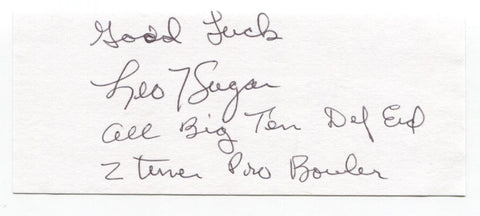 Good Luck
Leo T Sugar
All Big Ten Def End
2 time Pro Bowler